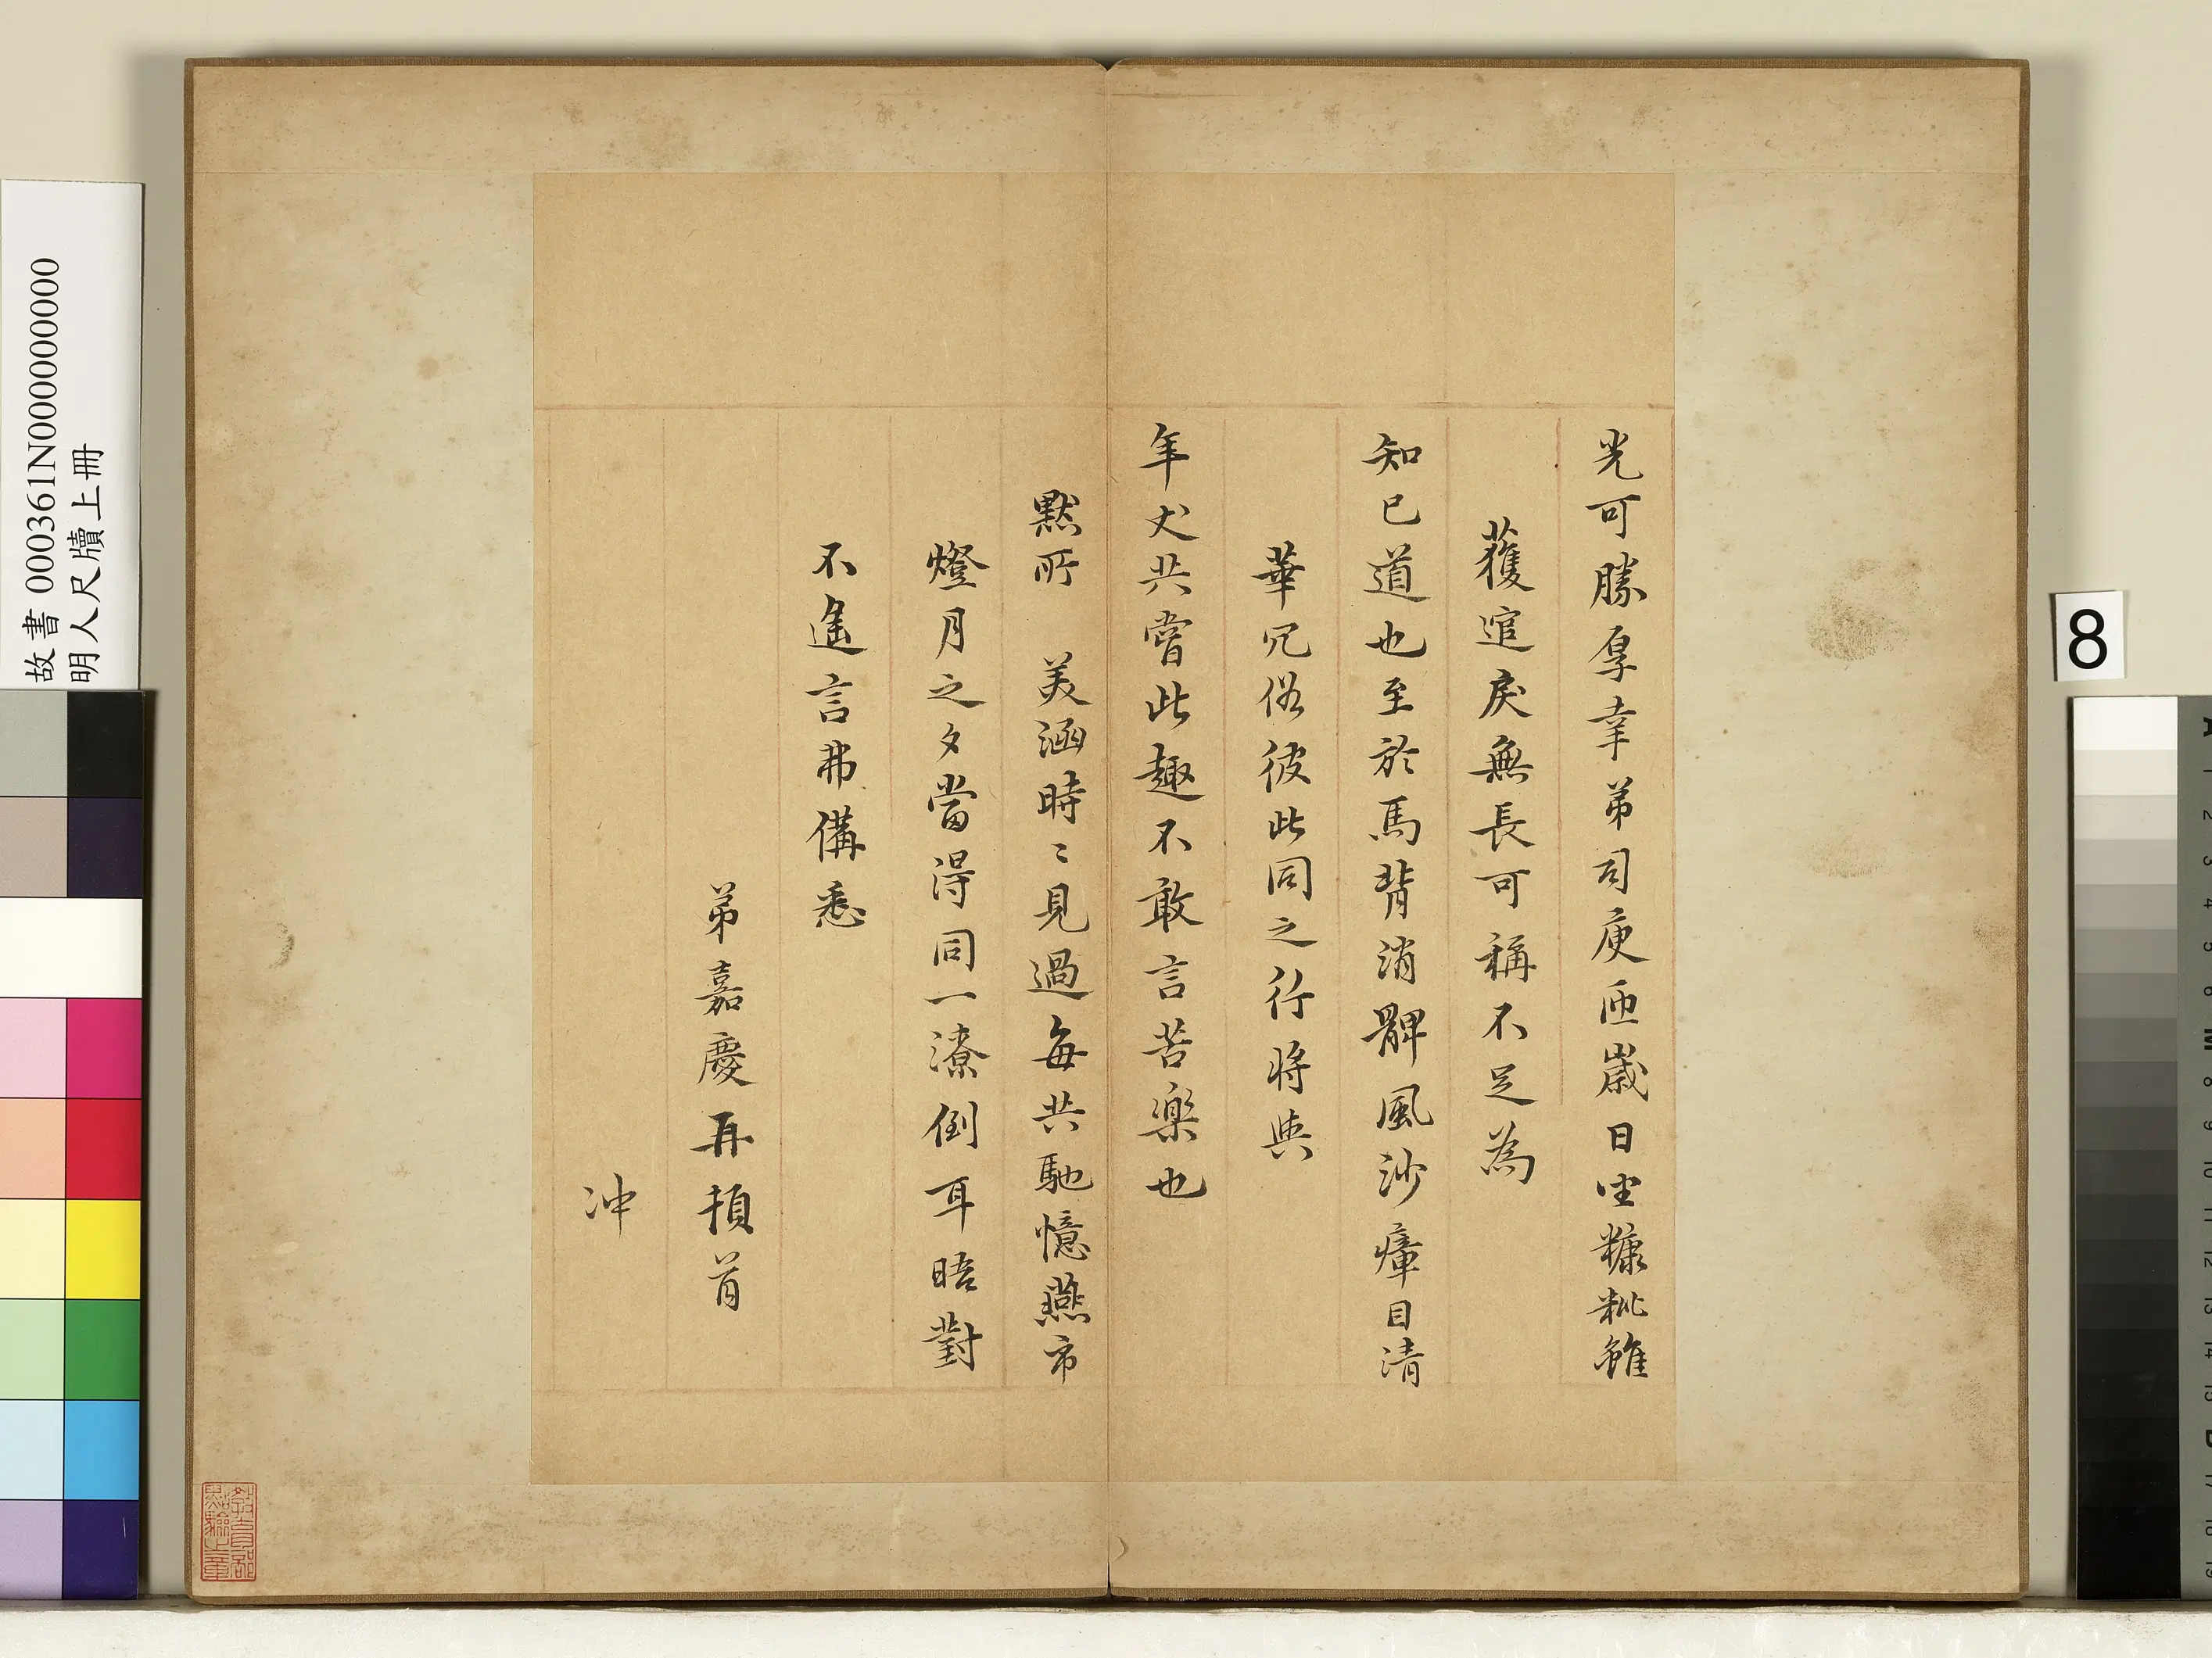 光可勝厚幸弟司庾匝歲日坐糠粃雖
獲逭戾無長可稱不足為
知已道也至於馬背消髀風沙瘴目清
華冗俗彼此同之行將與
年丈共嘗此趣不敢言苦樂也
黙所 美涵時〻見過每共馳憶燕市
燈月之夕當得同一潦倒耳晤對
不遙言弗備悉
弟嘉慶再頓首
冲
故書 000361N000000000
明人尺牘上冊
8
教育部
點驗之章